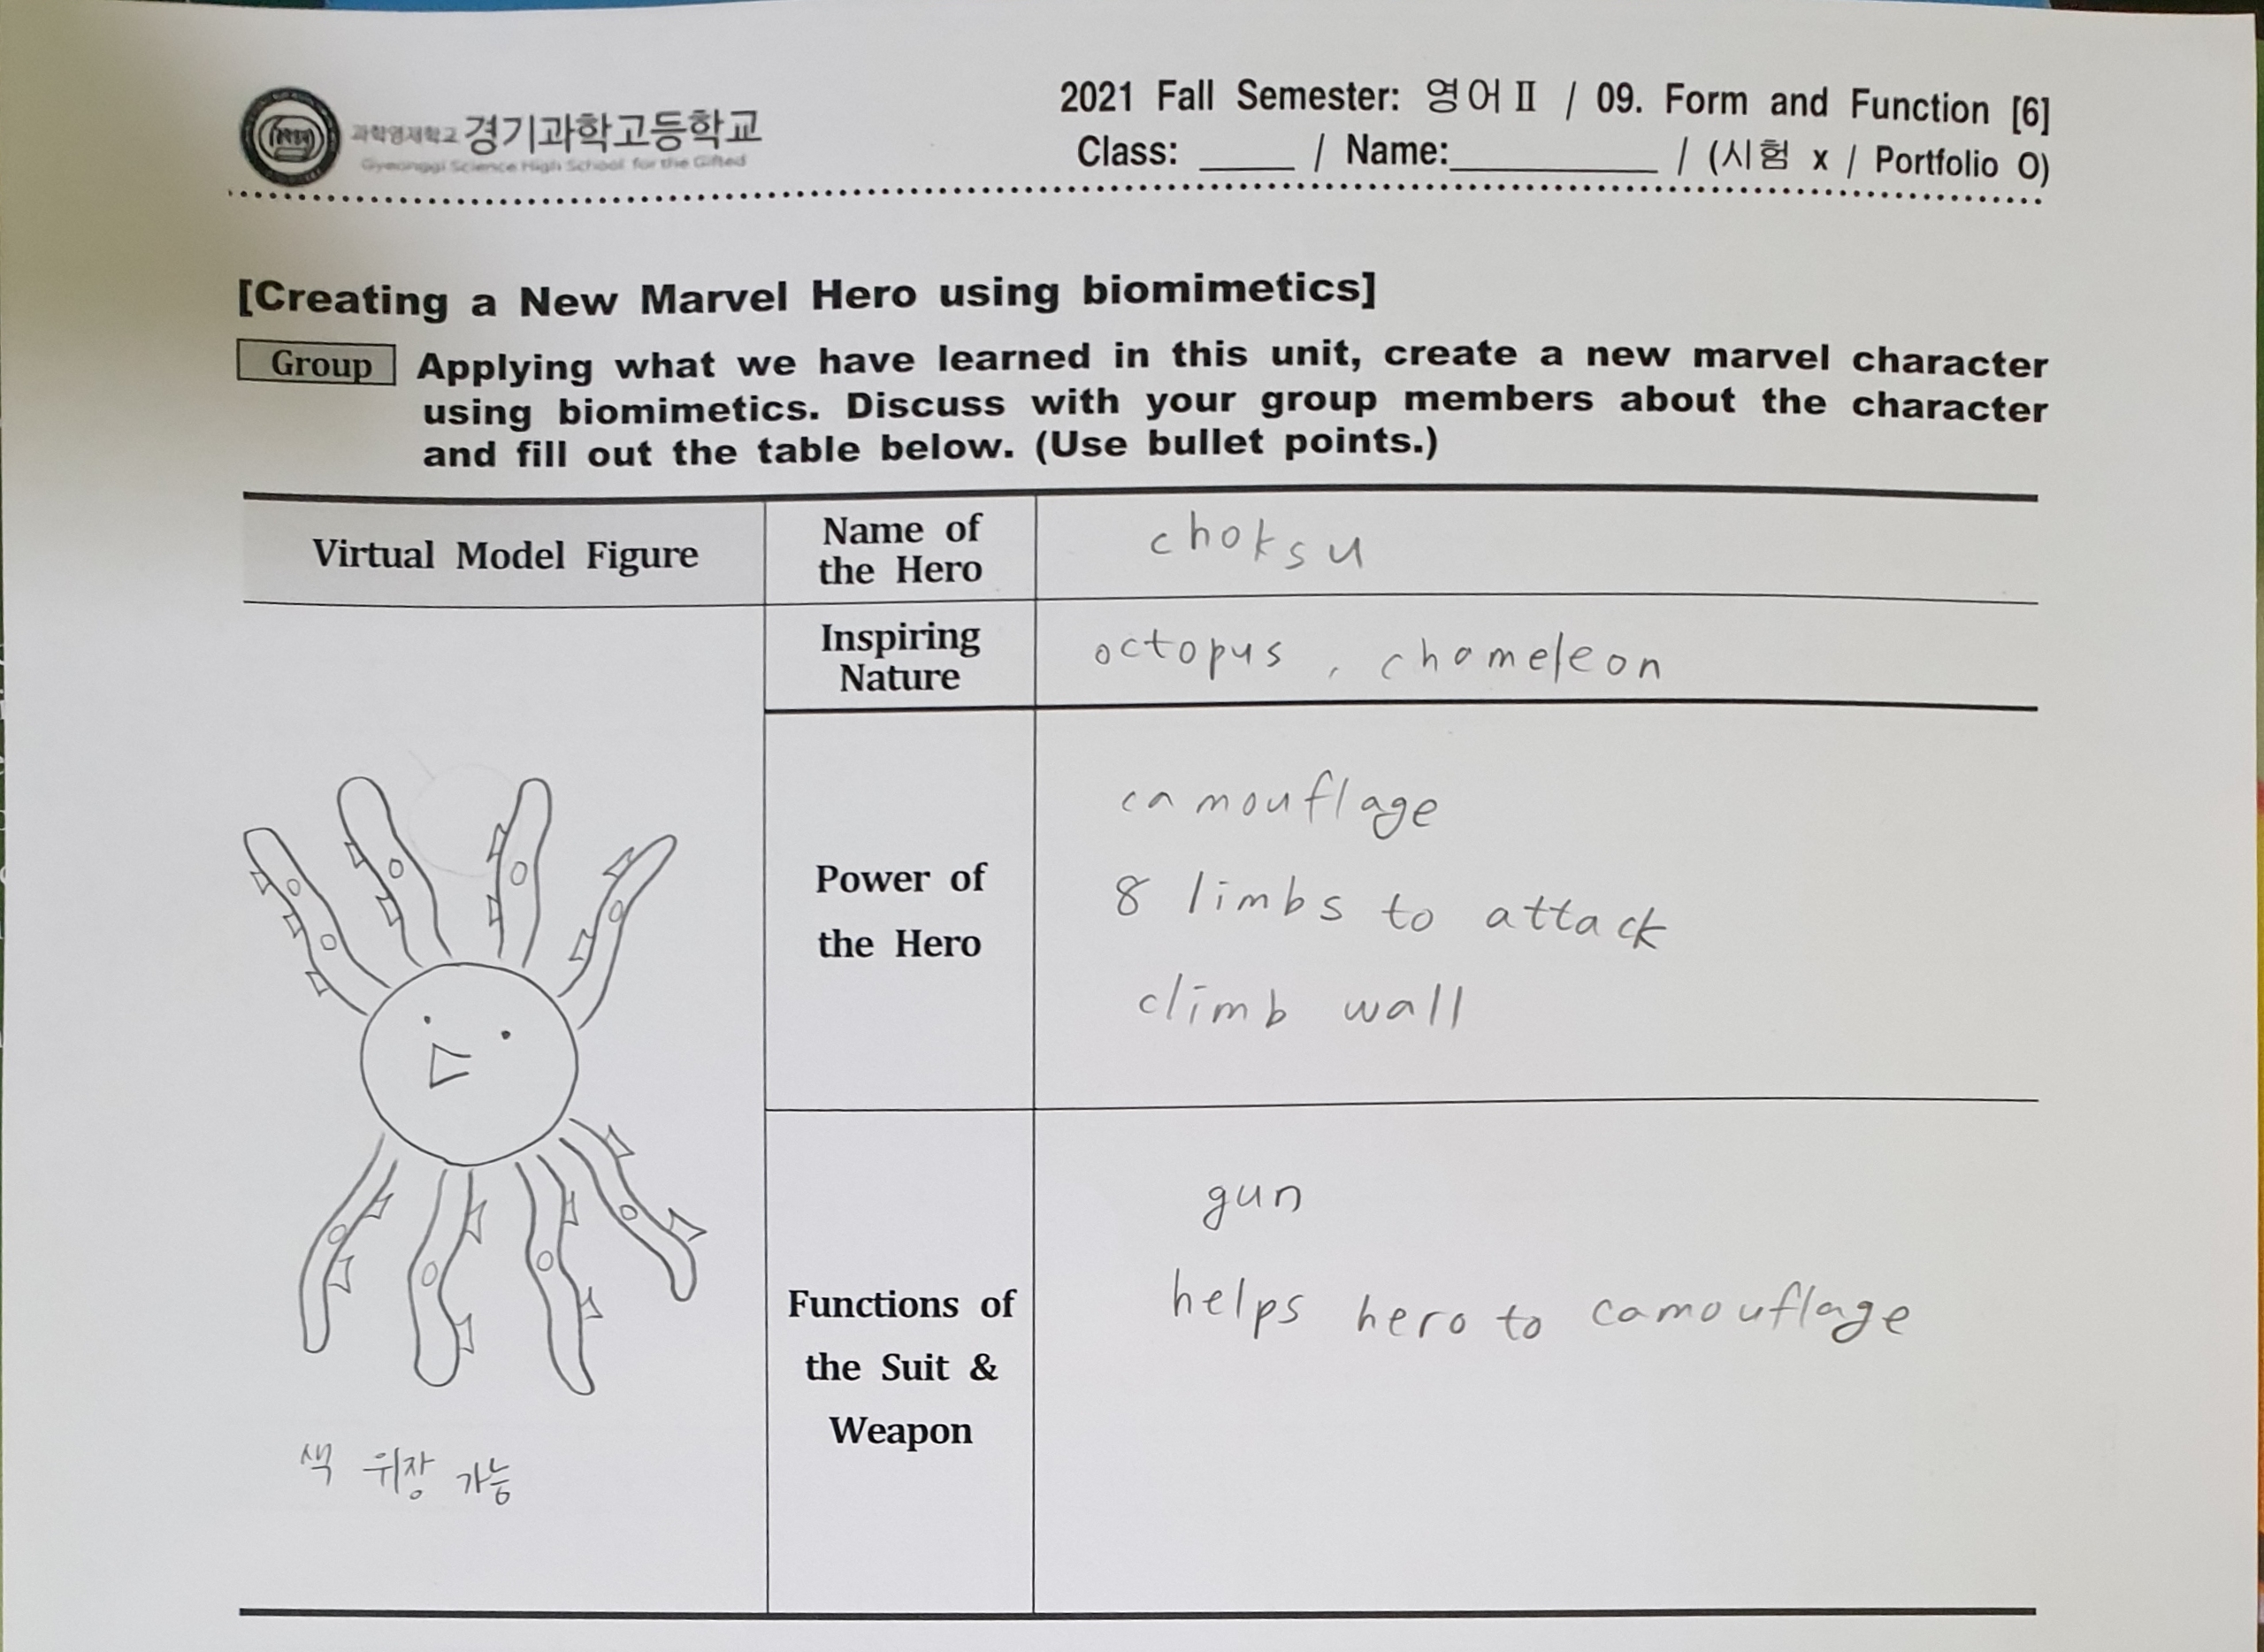 과학영재학교 경기과학고등학교
Gyeonggi Science High School for the Gifted
2021 Fall Semester: 영어Ⅱ / 09. Form and Function [6]
Class: ____ / Name:__________ / (시험 x / Portfolio O)
[Creating a New Marvel Hero using biomimetics]
Group Applying what we have learned in this unit, create a new marvel character
using biomimetics. Discuss with your group members about the character
and fill out the table below. (Use bullet points.)
Virtual Model Figure
Name of
the Hero
choksu
Inspiring
Nature
octopus, chameleon
Power of
the Hero
camouflage
8 limbs to attack
climb wall
Functions of
the Suit &
Weapon
gun
helps hero to camouflage
색 위장 가능